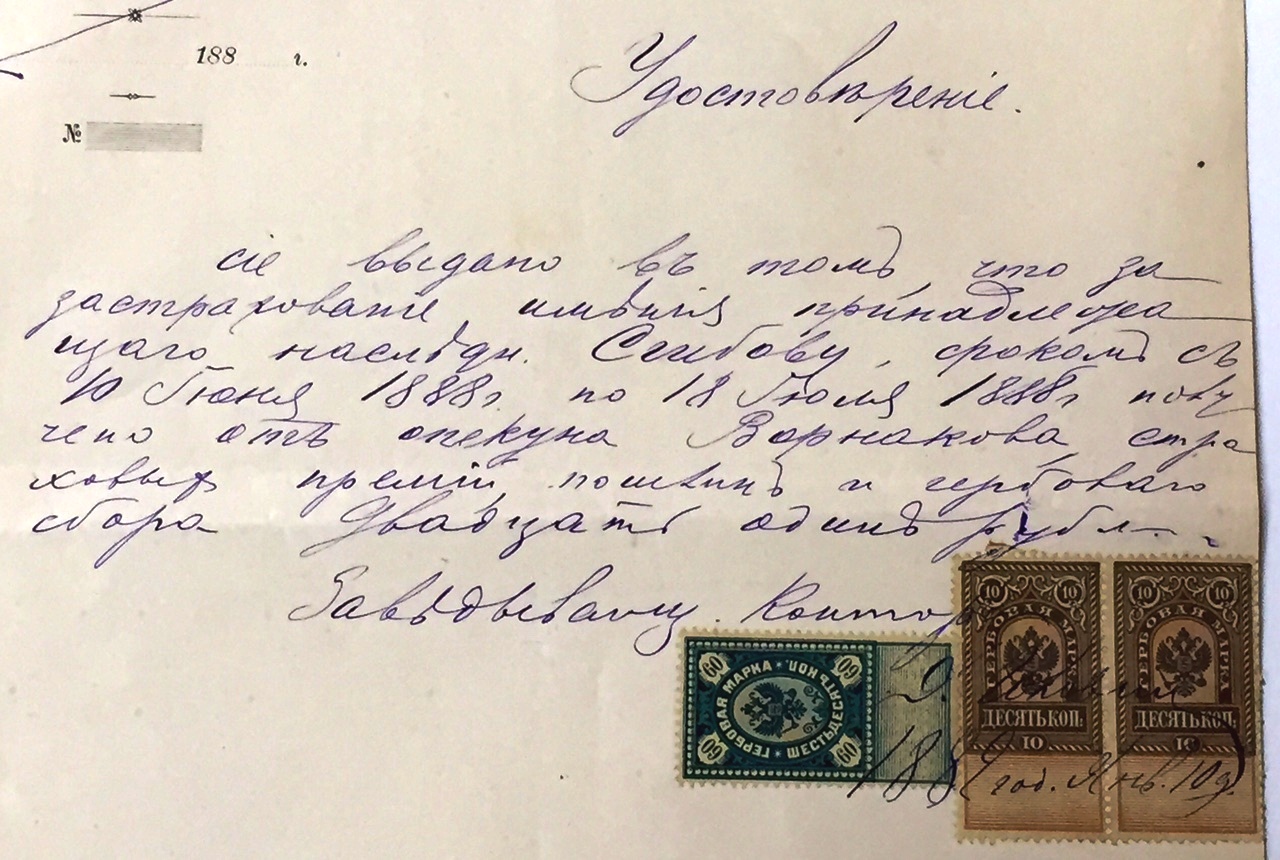 188 г.
№
Удостовѣреніе.
сіе выдано въ томъ, что за
застрахованіе имѣнія принадлежа
щаго наслѣдн. Сгибову, срокомъ съ
10 Іюня 1888 г по 18 Іюля 1888 г полу
чено отъ опекуна Ворнакова, стра
ховыхъ премій, пошлинъ и гербоваго
сбора Двадцать одинъ рубл.
Завѣдывающ. Контор
ГЕРБОВАЯ МАРКА
10 10
ДЕСЯТЬ КОП.
10
ГЕРБОВАЯ МАРКА
10 10
ДЕСЯТЬ КОП.
10
ГЕРБОВАЯ МАРКА ШЕСТЬДЕСЯТЪ КОП.
60 60 60 60
год. Янв. 10 д.